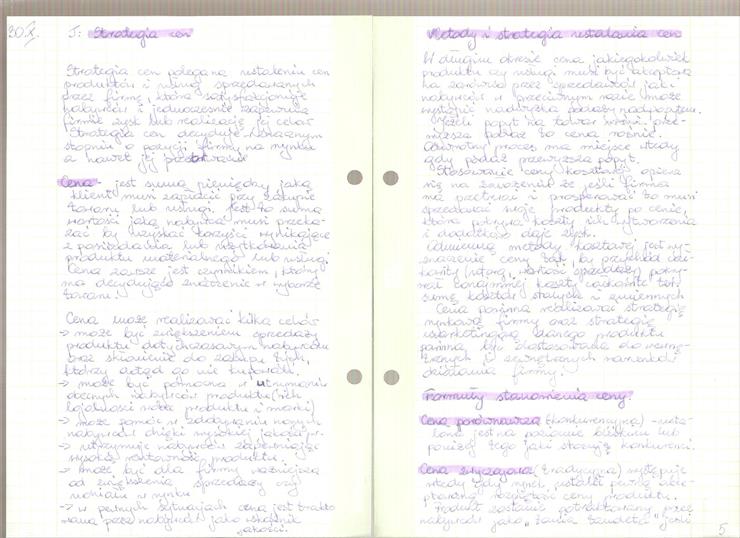 30 X.
T: Strategia cen
Strategia cen polega na ustaleniu cen
produktów i usług sprzedawanych
przez firmę, która satysfakcjonuje
nabywców i jednocześnie zapewnia
firmie zysk lub realizację jej celów
Strategia cen decyduje w znacznym
stopniu o pozycji firmy na rynku
a nawet jej przetrwanie
Cena - jest sumą pieniędzy jaką
klient musi zapłacić przy zakupie
towaru lub usługi. Jest to suma
wartości jaką nabywca musi przeka-
zać by uzyskać korzyści wynikające
z posiadania lub użytkowania
produktu materialnego lub usługi
Cena zawsze jest czynnikiem, który
ma decydujące znaczenie w wyborze
towaru.
Cena może realizować kilka celów
→ może być zwiększeniem sprzedaży
produktu dotychczasowym nabywcom
oraz skłonienie do zakupu tych,
którzy dotąd go nie kupowali
→ może być pomocna w utrzymaniu
obecnych nabywców produktu (ich
lojalności wobec produktu i marki)
→ może pomóc w zdobywaniu nowych
nabywców dzięki wysokiej jakości pr.
→ utrzymuje nabywców zapewniając
wysoką rentowność produktu.
→ może być dla firmy ważniejsza
od zwiększenia sprzedaży czy
udziału w rynku
→ w pewnych sytuacjach cena jest trakto-
wana przez nabywców jako wskaźnik
jakości.
Metody i strategia ustalania cen
W długim okresie cena jakiegokolwiek
produktu czy usługi musi być akceptowa
na zarówno przez sprzedawców jak i
nabywców w przeciwnym razie może
wystąpić nadwyżka podaży nad popytem.
Jeżeli popyt na towar wzrośnie prze-
wyższa podaż to cena rośnie.
Odwrotny proces ma miejsce wtedy
gdy podaż przewyższa popyt.
Stosowanie ceny kosztowej opiera
się na założeniu że jeśli firma
ma przetrwać i prosperować to musi
sprzedawać swoje produkty po cenie,
która pokrywa koszty ich wytworzenia
i dodatkowo daje zysk.
Odmianą metody kosztowej jest wy-
znaczenie ceny tak, by przychód cał-
kowity (utarg, wartość sprzedaży) pokry-
wał co najmniej koszty całkowite tzn.
sumę kosztów stałych i zmiennych
Cena powinna realizować strategię
rynkową firmy oraz strategię
marketingową danego produktu
powinna być dostosowana do wewnę-
trznych i zewnętrznych warunków
działania firmy.
Formuły stanowienia ceny:
Cena porównawcza (konkurencyjna) - usta-
lona jest na poziomie bliskim lub
powyżej tego jaki stosują konkurenci.
Cena zwyczajowa (tradycyjna) występuje
wtedy gdy rynek ustalił pewną akce-
ptowaną wysokość ceny produktu.
Produkt zostanie potraktowany przez
nabywców jako "tania tandeta" jeśli
5